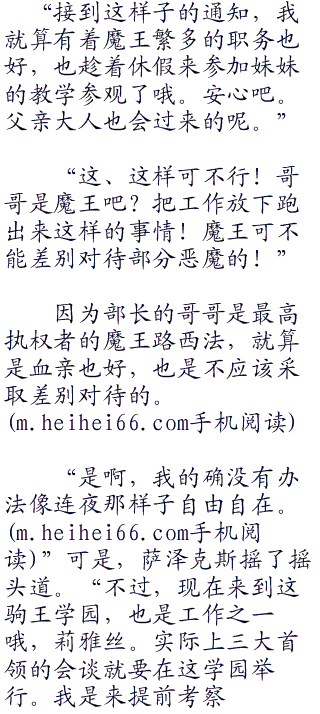 “接到这样子的通知，我
就算有着魔王繁多的职务也
好，也趁着休假来参加妹妹
的教学参观了哦。安心吧。
父亲大人也会过来的呢。”
“这、这样可不行！哥
哥是魔王吧？把工作放下跑
出来这样的事情！魔王可不
能差别对待部分恶魔的！”
因为部长的哥哥是最高
执权者的魔王路西法，就算
是血亲也好，也是不应该采
取差别对待的。
(m.heihei66.com手机阅读)
“是啊，我的确没有办
法像连夜那样子自由自在。
(m.heihei66.com手机阅
读)”可是，萨泽克斯摇了摇
头道。“不过，现在来到这
驹王学园，也是工作之一
哦，莉雅丝。实际上三大首
领的会谈就要在这学园举
行。我是来提前考察